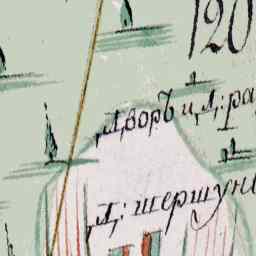 120
Дворъ и Д: ра
Д: шершун